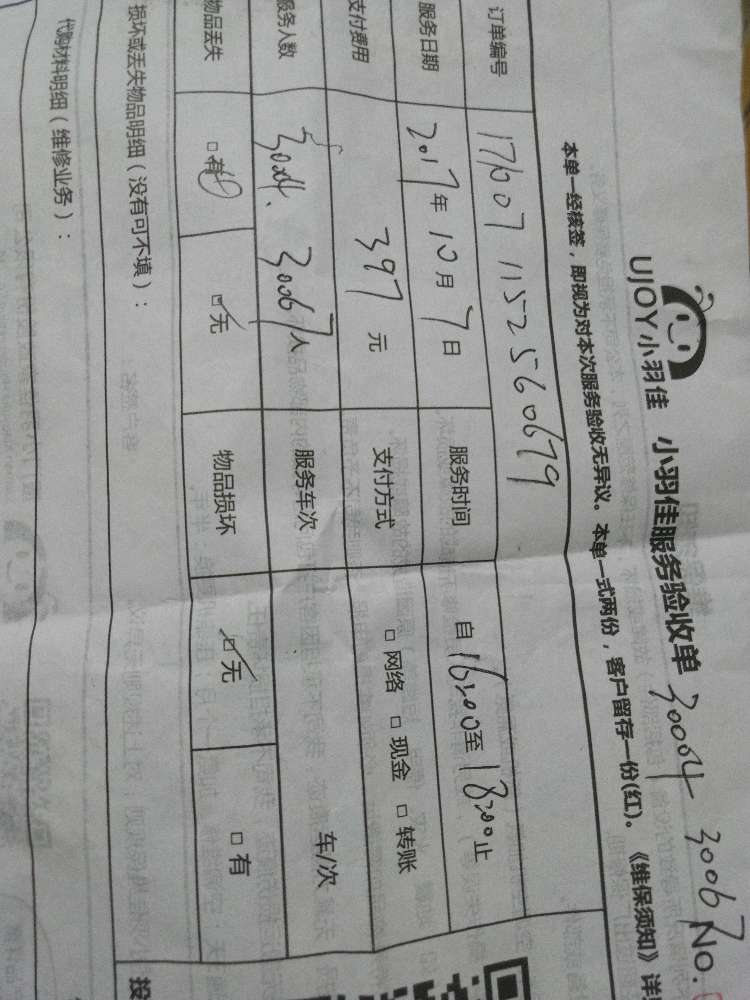 UJOY小羽佳 小羽佳服务验收单 30004 30067 No.
本单一经核签，即视为对本次服务验收无异议。本单一式两份，客户留存一份(红)。《维保须知》详
订单编号 171007 1152560679
服务日期 2017年10月7日 服务时间 自16:00至18:00止
支付费用 397元 支付方式 □网络 □现金 □转账
服务人数 30004. 30067人 服务车次 车/次
物品丢失 □有 ☑无 物品损坏 ☑无 □有
损坏或丢失物品明细（没有可不填）：
代购材料明细（维修业务）：
投